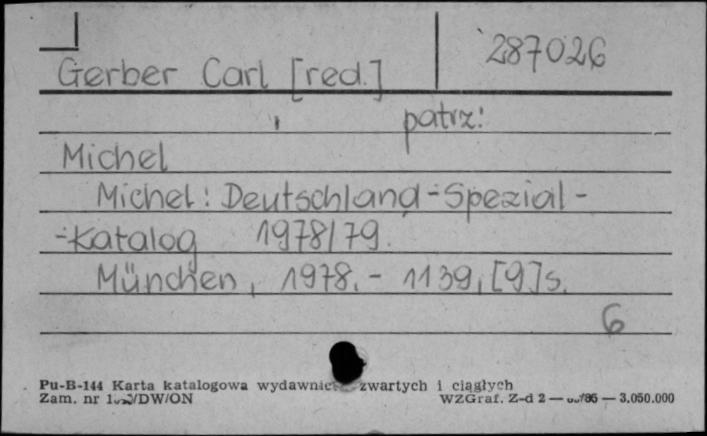 287026
Gerber Carl [red.]
patrz:
Michel
Michel: Deutschland-Spezial-
-Katalog 1978/79.
München, 1978.- 1139, [9]s.
6
Pu-B-144 Karta katalogowa zwartych i ciągłych
Zam. nr WZGraf. Z-d 2 — 3.050.000